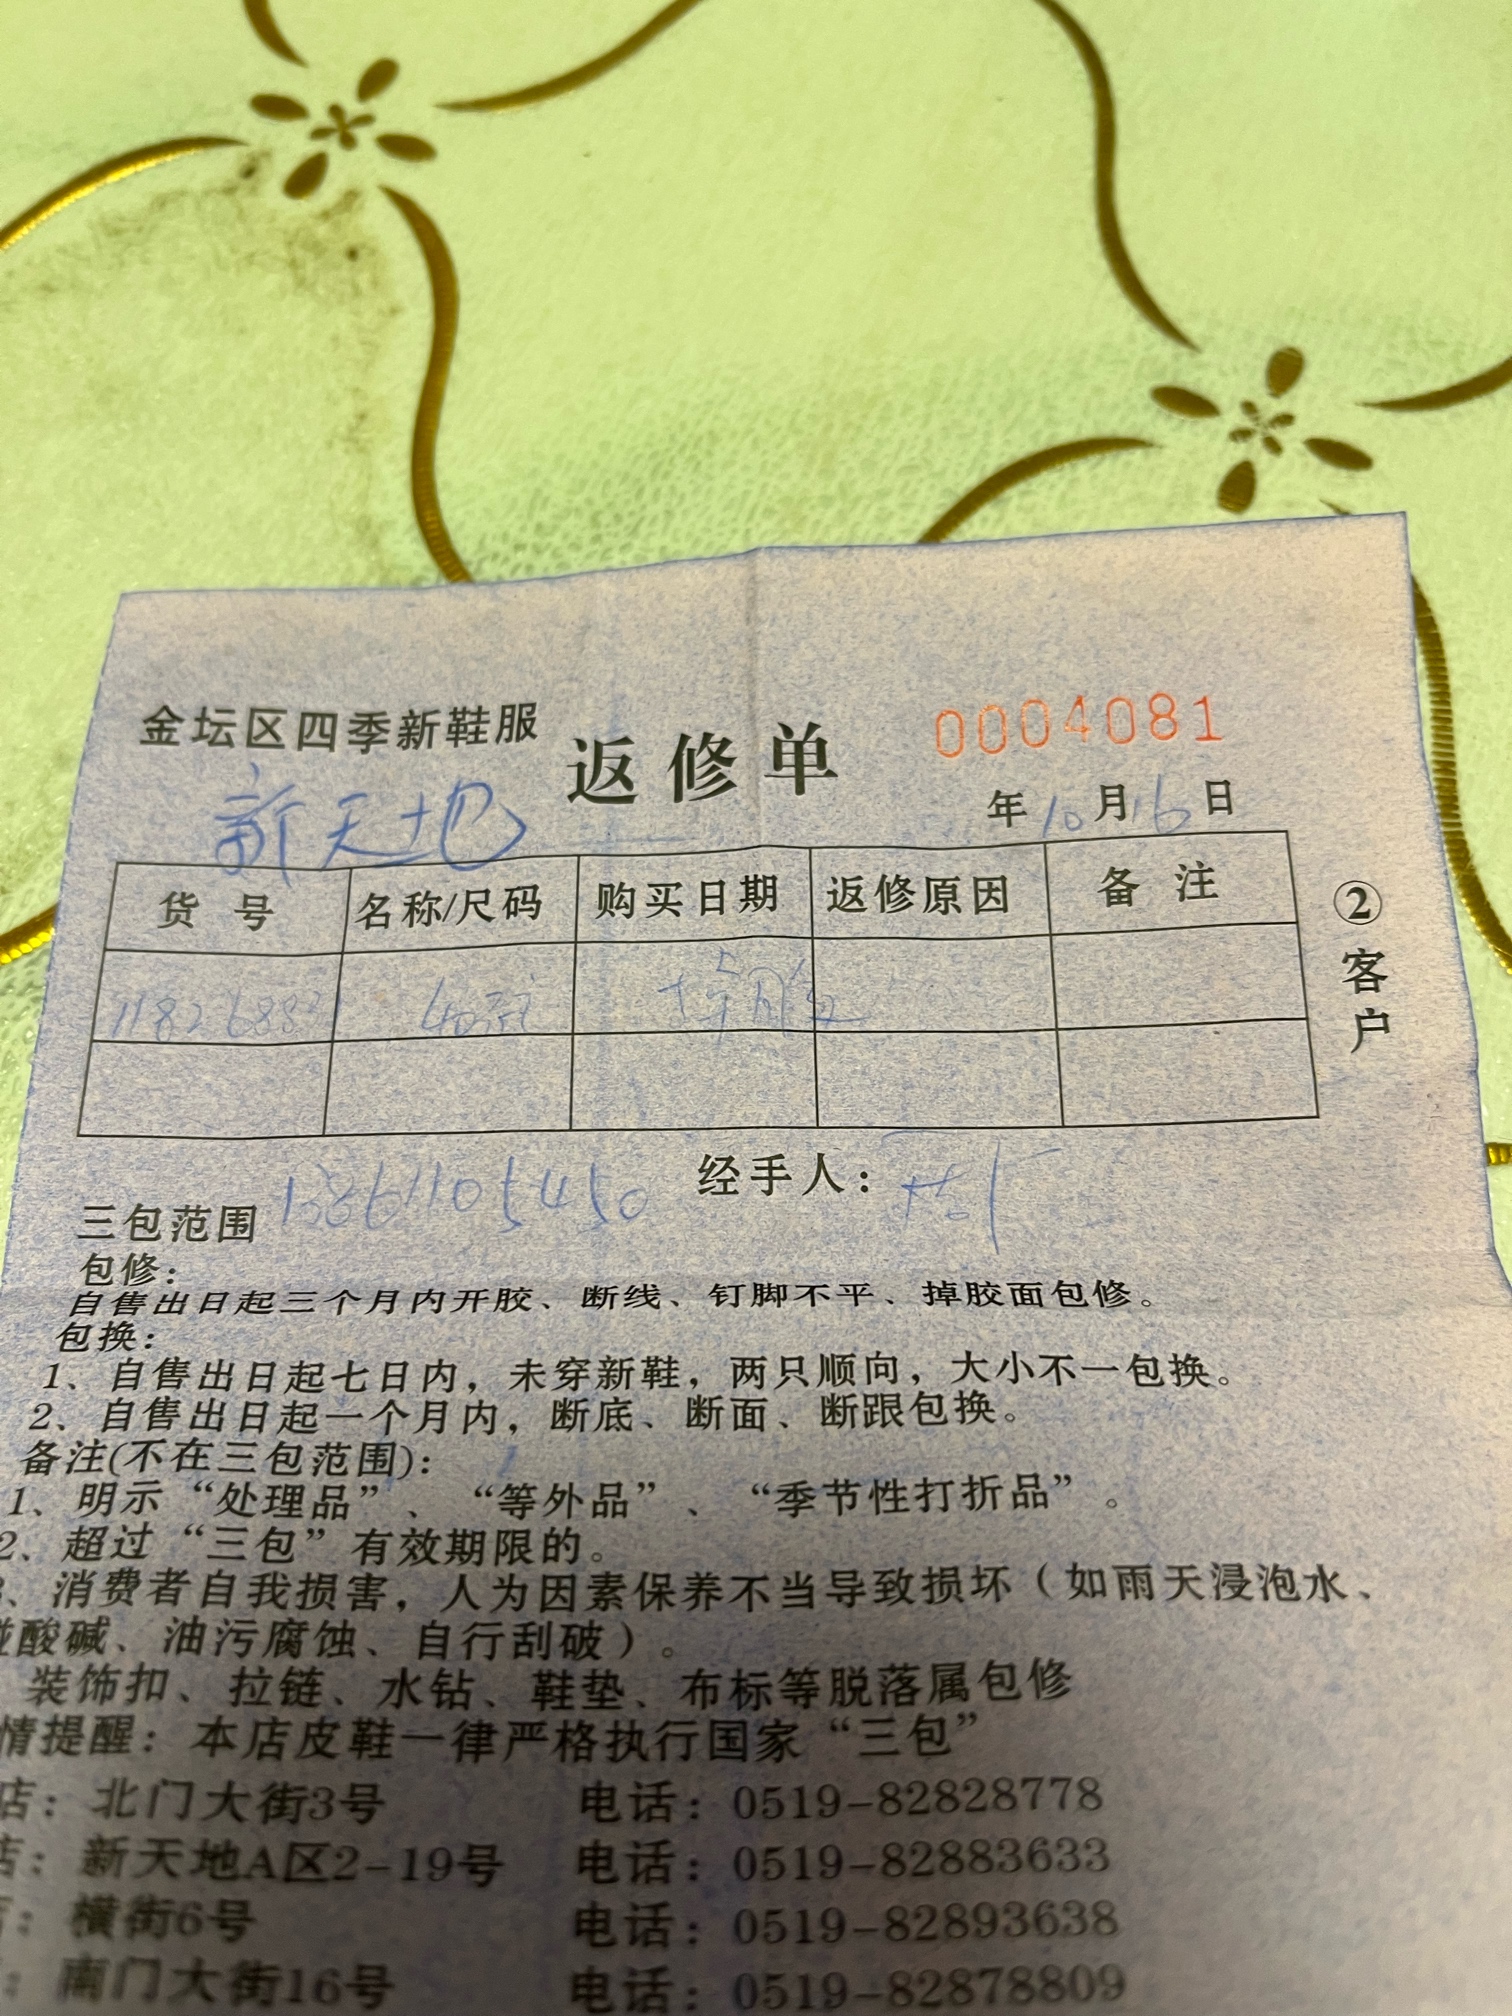 金坛区四季新鞋服 返修单 0004081
新天地
年10月16日
货号 名称/尺码 购买日期 返修原因 备注
②客户
掉胶
经手人：
13861105450
三包范围
包修：
自售出日起三个月内开胶、断线、钉脚不平、掉胶面包修。
包换：
1、自售出日起七日内，未穿新鞋，两只顺向，大小不一包换。
2、自售出日起一个月内，断底、断面、断跟包换。
备注(不在三包范围)：
1、明示“处理品”、“等外品”、“季节性打折品”。
2、超过“三包”有效期限的。
3、消费者自我损害，人为因素保养不当导致损坏（如雨天浸泡水、
碰酸碱、油污腐蚀、自行刮破）。
装饰扣、拉链、水钻、鞋垫、布标等脱落属包修
情提醒：本店皮鞋一律严格执行国家“三包”
店：北门大街3号 电话：0519-82828778
店：新天地A区2-19号 电话：0519-82883633
店：横街6号 电话：0519-82893638
：南门大街16号 电话：0519-82878809